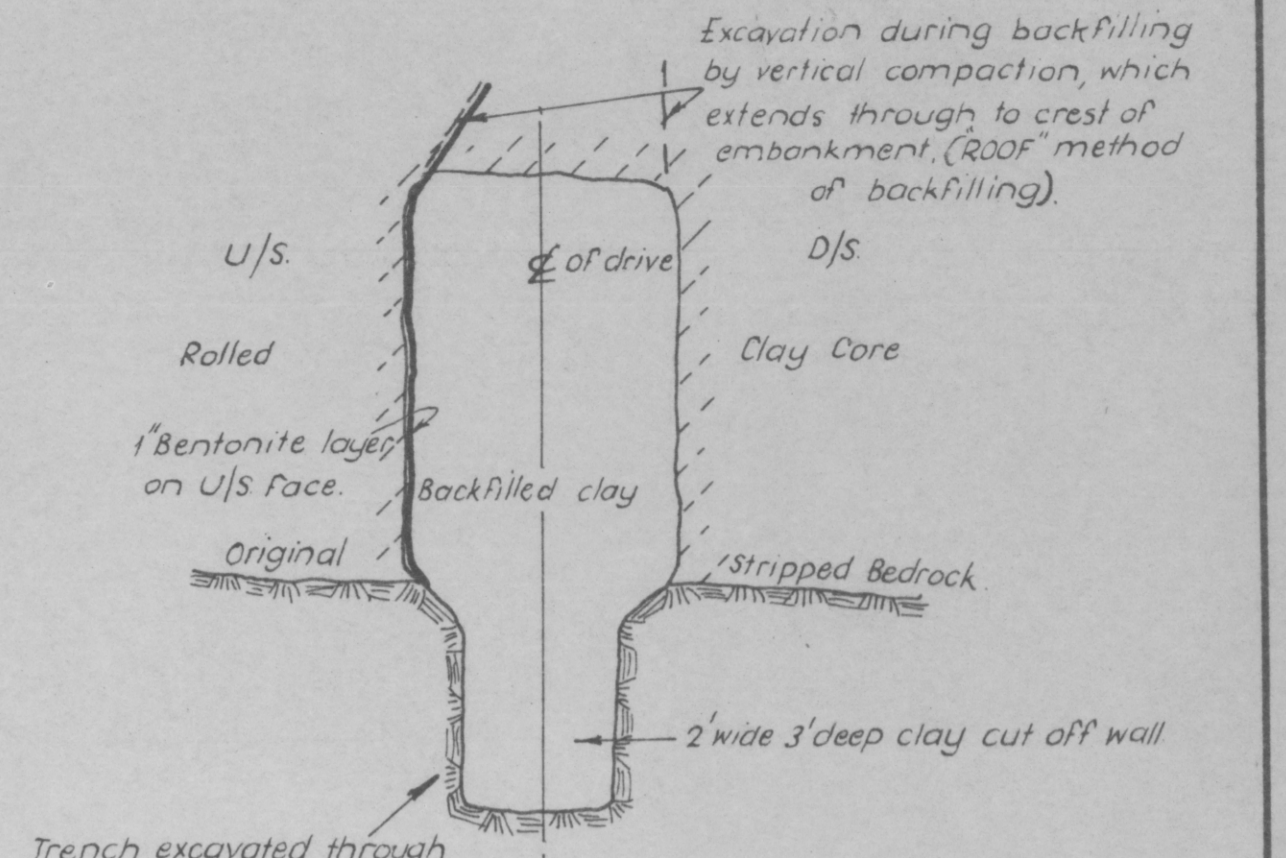 Excavation during backfilling
by vertical compaction, which
extends through to crest of
embankment. ("ROOF" method
of backfilling).
U/S.
℄ of drive
D/S.
Rolled
Clay Core
1" Bentonite layer,
on U/S face.
Backfilled clay
Original
Stripped Bedrock
2' wide 3' deep clay cut off wall
Trench excavated through